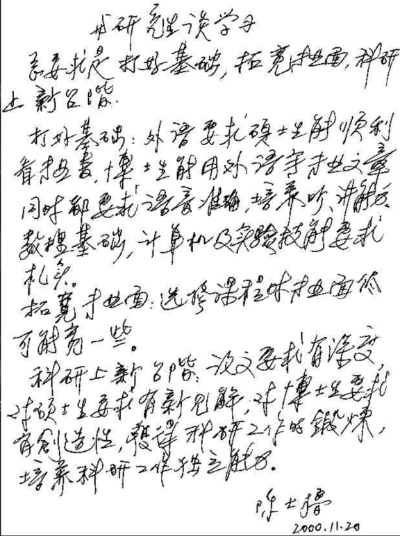 对研究生谈学习
总要求是打好基础,拓宽专业面,科研
上新台阶.
打好基础:外语要求硕士生能顺利
看专业书,博士生能用外语写专业文章
同时都要求语音准确,培养听、讲能力
数理基础,计算机及实验技能要求
扎实。
拓宽专业面:选修课程时专业面尽
可能宽一些。
科研上新台阶:论文要求有深度,
对硕士生要求有新见解,对博士生要求
有创造性,获得科研工作的锻炼,
培养科研工作独立能力.
陈士橹
2000.11.20